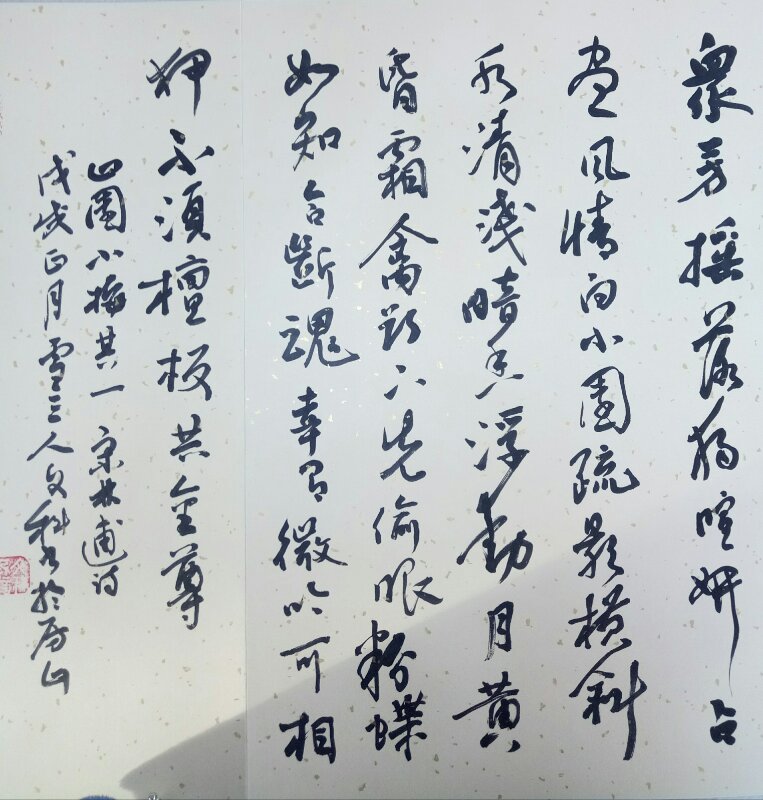 眾芳摇落獨暄妍占
盡風情向小園疏影橫斜
水清淺暗香浮動月黃
昏霜禽欲下先偷眼粉蝶
如知合斷魂幸有微吟可相
狎不須檀板共金尊
山園小梅其一 宋林逋詩
戊戌正月雪三人文科书於房山